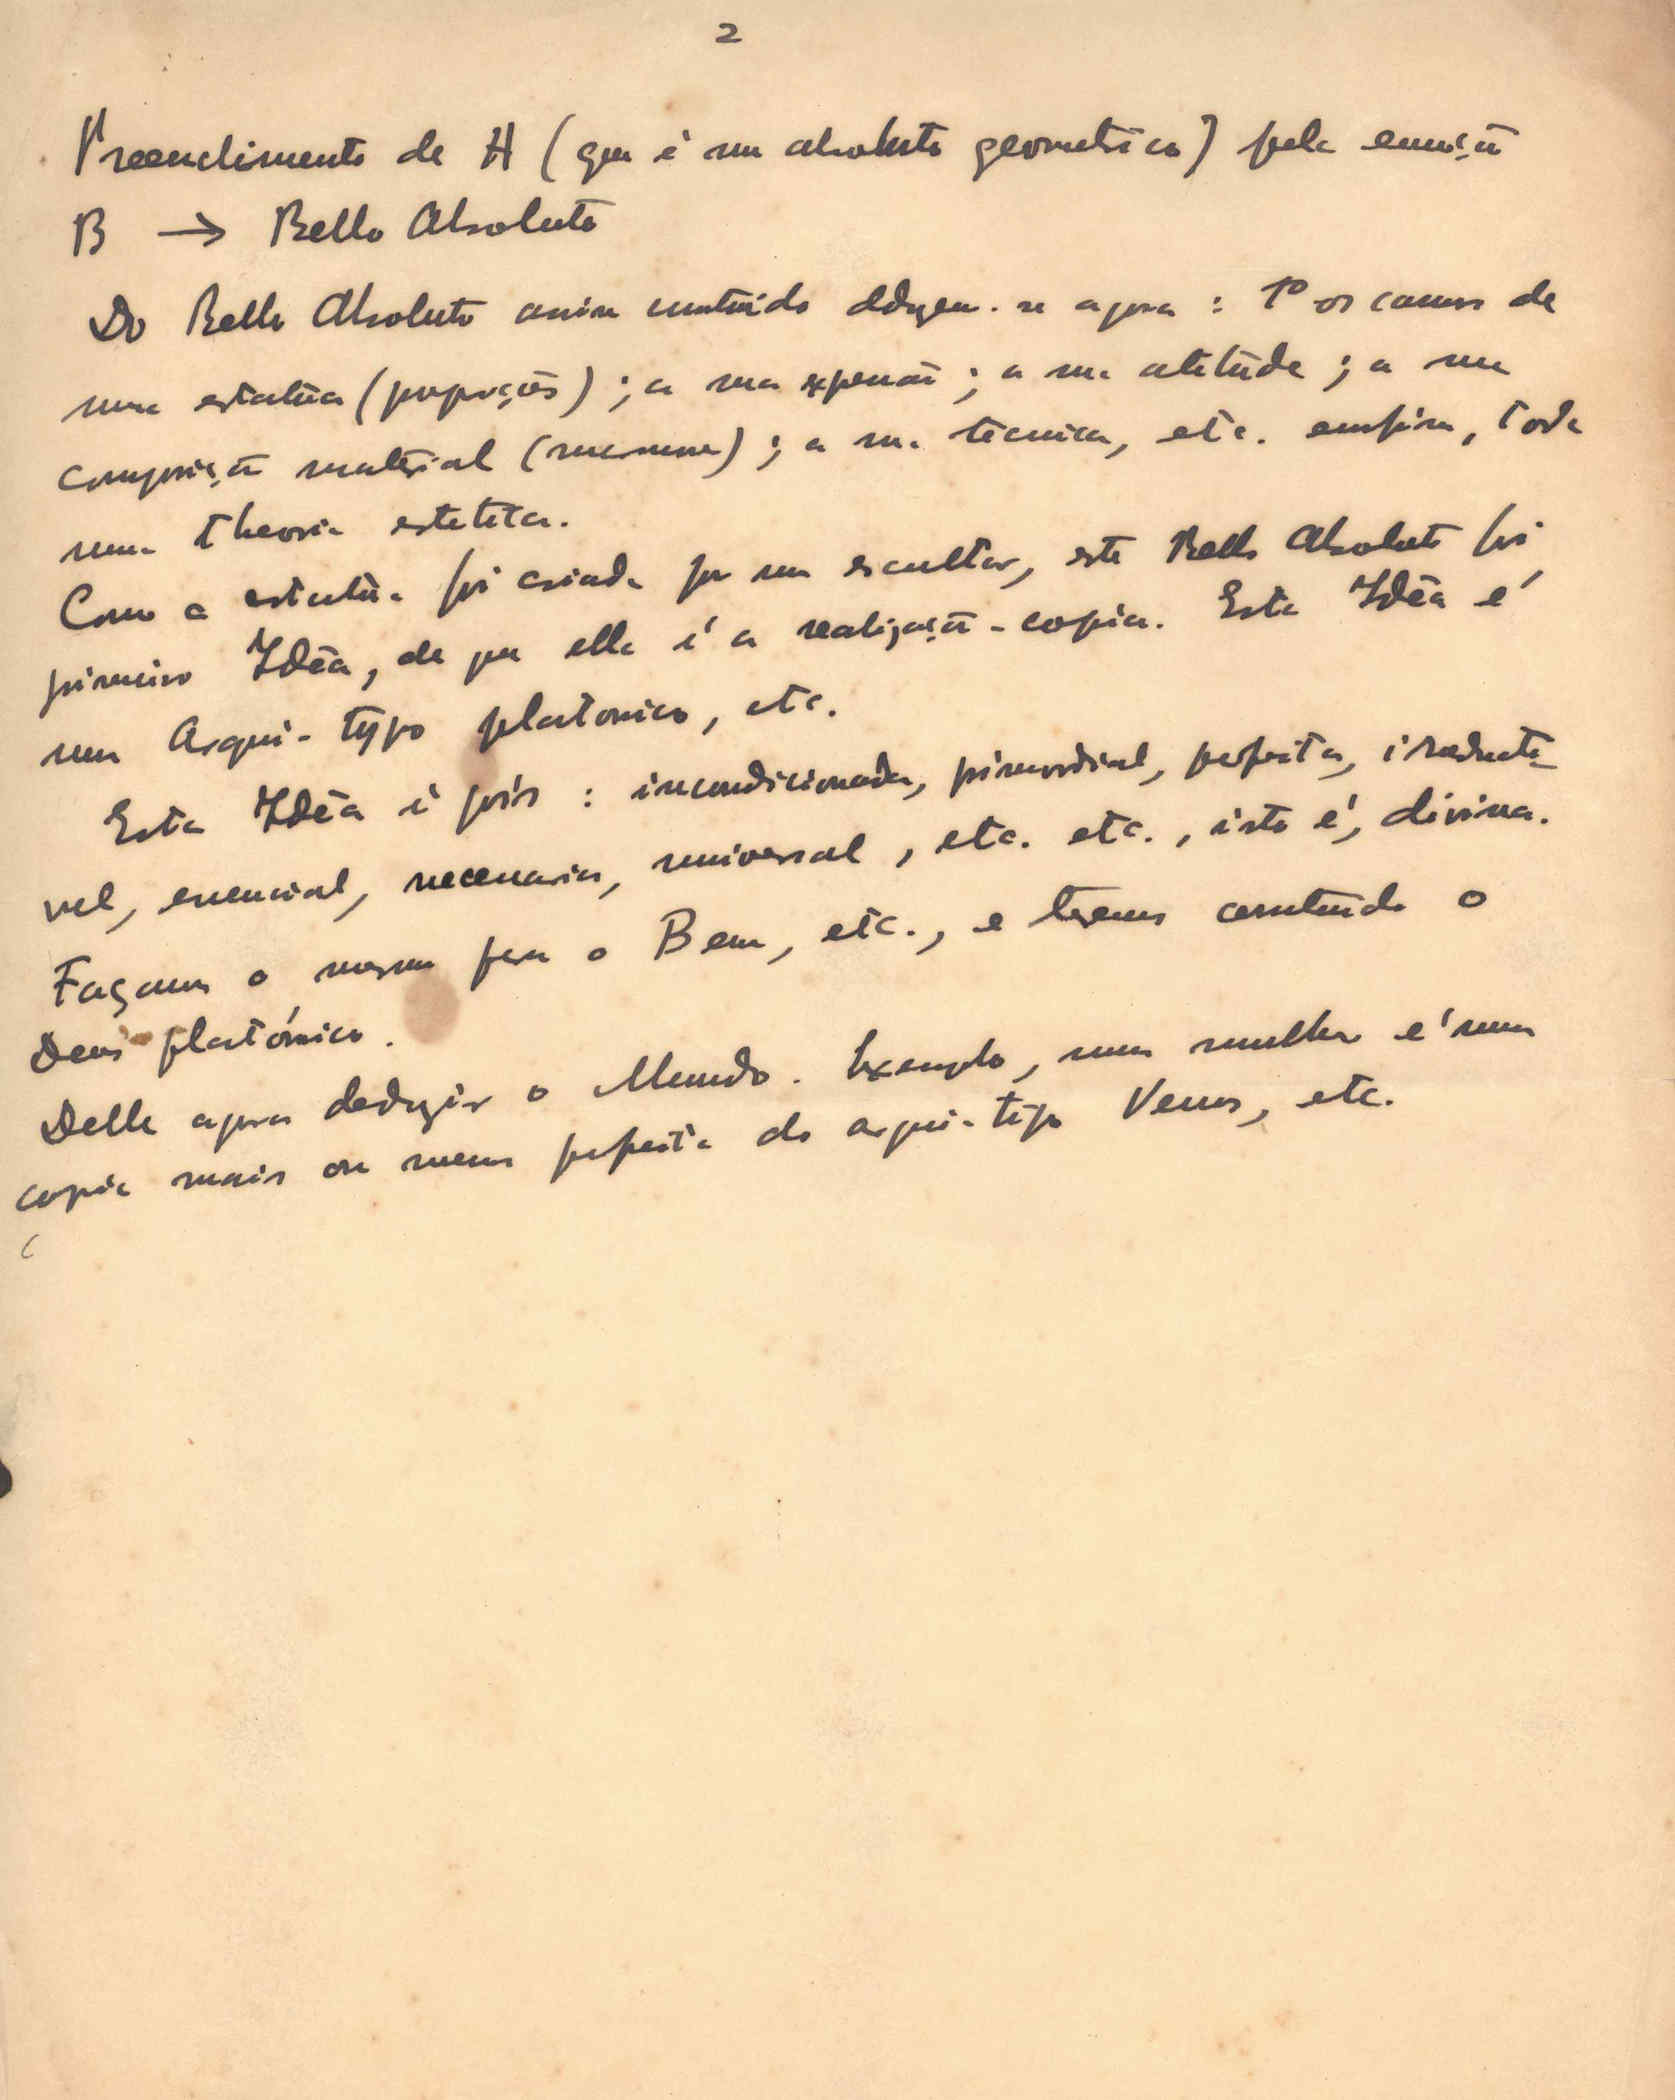 2
Preenchimento de H (que é um absoluto geometrico) pela emoção
B → Bello Absoluto
Do Bello Absoluto assim contruido deduzem-se agora : 1º os canons de
uma estatua (proporções) ; a sua expensão ; a sua atitude ; a sua
composição material (marmore) ; a sua tecnica, etc. emfim, toda
uma theoria estetica.
Como a estatua foi criada por um escultor, este Bello Absoluto foi
primeiro Idêa, de que ella é a realização-copia. Esta Idêa é
um Arqui-typo platonico, etc.
Esta Idêa é pois : incondicionada, primordial, perfeita, irreducti-
vel, essencial, necessaria, universal, etc. etc., isto é, divina.
Façamos o mesmo para o Bem, etc., e teremos contruido o
Deus platónico.
Delle agora deduzir o Mundo. Exemplo, uma mulher é uma
copia mais ou menos perfeita do arqui-tipo Venus, etc.